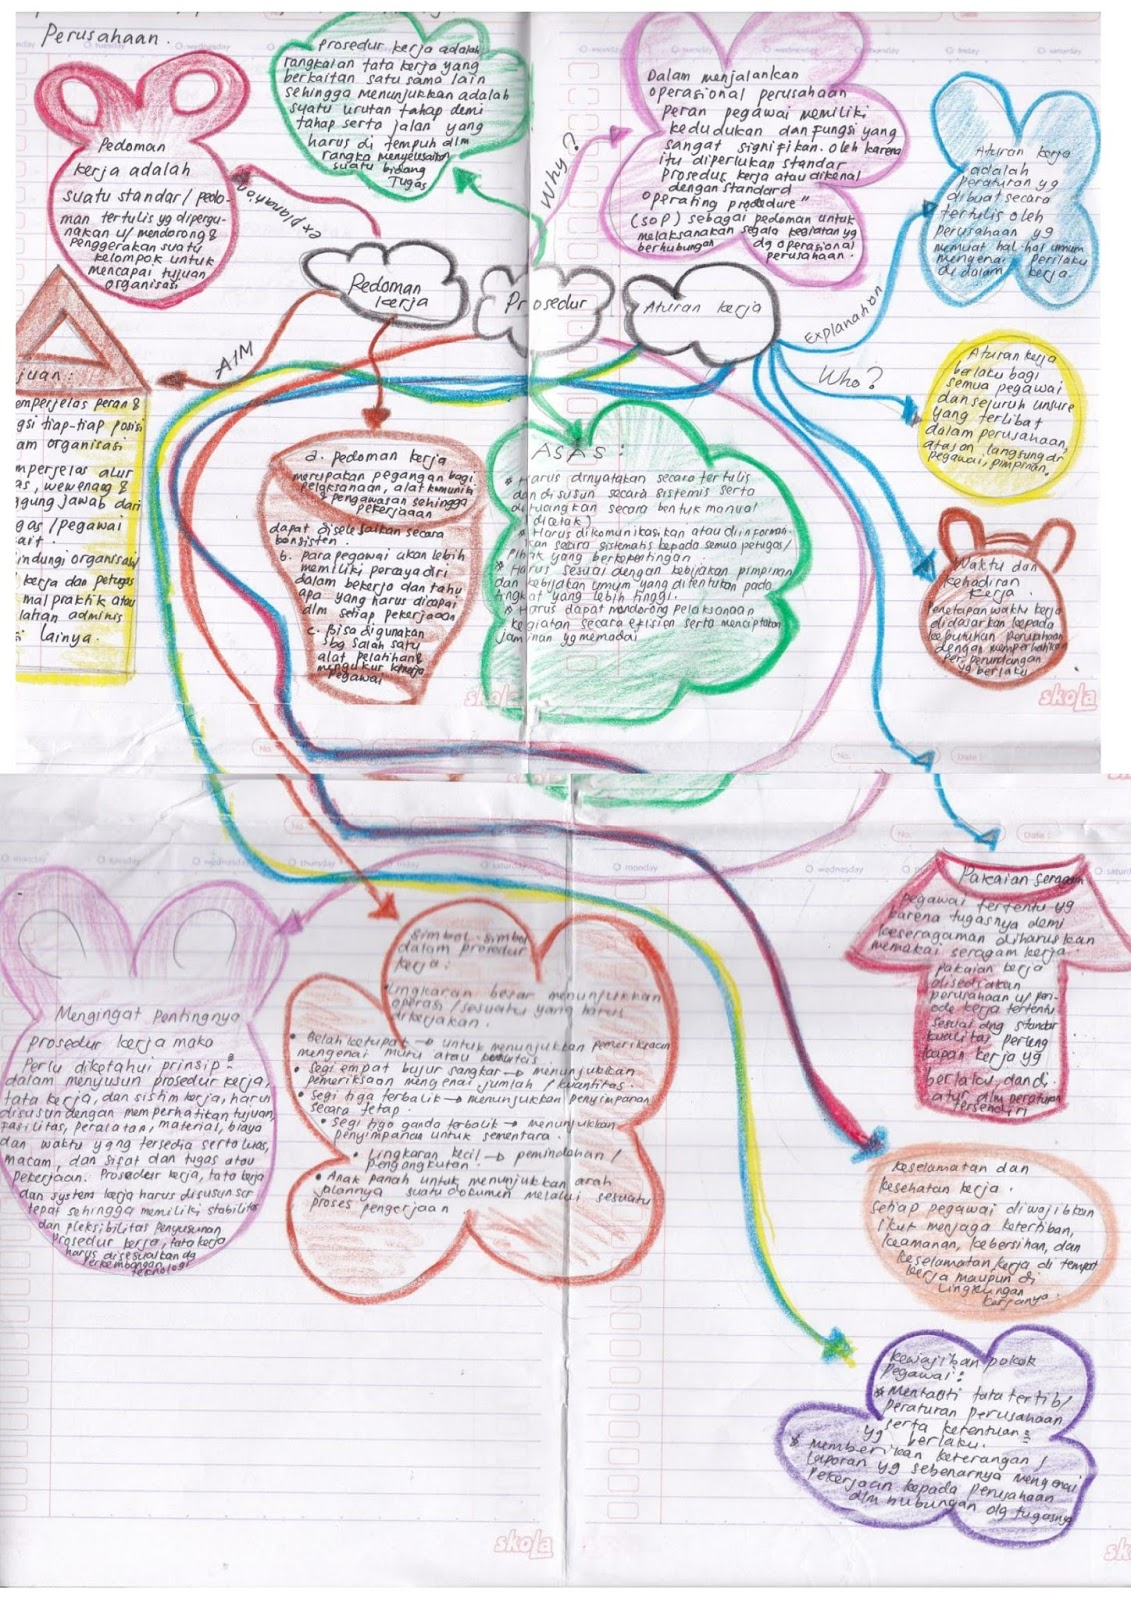 Perusahaan.
Pedoman
kerja adalah
suatu standar/pedo-
man tertulis yg dipergu-
nakan u/ mendorong &
penggerakan suatu
kelompok untuk
mencapai tujuan
organisasi
prosedur kerja adalah
rangkaian tata kerja yang
berkaitan satu sama lain
sehingga menunjukkan adalah
suatu urutan tahap demi
tahap serta jalan yang
harus di tempuh dlm
rangka menyelesaikan
suatu bidang
Tugas
Why?
Dalam menjalankan
operasional perusahaan
peran pegawai memiliki
kedudukan dan fungsi yang
sangat signifikan. oleh karena
itu diperlukan standar
prosedur kerja atau dikenal
dengan standard
operating procedure"
(SOP) sebagai pedoman untuk
melaksanakan segala kegiatan yg
berhubungan dg operasional
perusahaan.
Aturan kerja
adalah
peraturan yg
dibuat secara
tertulis oleh
perusahaan yg
memuat hal-hal umum
mengenai perilaku
di dalam kerja.
explanation
Pedoman
kerja
Prosedur
Aturan kerja
Explanation
AIM
Who?
juan:
emperjelas peran &
gsi tiap-tiap posisi
am organisasi
mperjelas alur
as, wewenang &
ggung jawab dari
gas/pegawai
ait.
indungi organisasi
kerja dan petugas
malpraktik atau
lahan adminis
lainya.
a. pedoman kerja
merupakan pegangan bagi
pelaksanaan, alat komunika
& pengawasan sehingga
pekerjaaan
dapat diselesaikan secara
konsisten.
b. para pegawai akan lebih
memiliki percaya diri
dalam bekerja dan tahu
apa yang harus dicapai
dlm setiap pekerjaaan
c. Bisa digunakan
sbg salah satu
alat pelatihan &
mengukur kinerja
pegawai
ASAS:
* Harus dinyatakan secara tertulis
dan di susun secara sistemis serta
dituangkan secara bentuk manual
dicetak)
* Harus dikomunikasikan atau diinformasi-
kan secara sistematis kepada semua petugas/
pihak yang berkepentingan.
* Harus sesuai dengan kebijakan pimpinan
dan kebijakan umum yang ditentukan pada
tingkat yg lebih tinggi.
* Harus dapat mendorong pelaksanaan
kegiatan secara efisien serta menciptakan
jaminan yg memadai
Aturan kerja
berlaku bagi
semua pegawai
dan seluruh unsure
yang terlibat
dalam perusahaan,
atasan langsung dr
pegawai, pimpinan.
Waktu dan
kehadiran
kerja
Penetapan waktu kerja
didasarkan kepada
kebutuhan perusahaan
dengan memperhatikan
per.perundangan
yg berlaku
skola
Pakaian seragam
pegawai tertentu yg
karena tugasnya demi
keseragaman diharuskan
memakai seragam kerja.
pakaian kerja
disediakan
perusahaan u/ peri-
ode kerja tertentu
sesuai dng standar
kualitas perleng
kapan kerja yg
berlaku, dan di
atur dlm peraturan
tersendiri
Mengingat pentingnya
prosedur kerja maka
Perlu diketahui prinsip²
dalam menyusun prosedur kerja,
tata kerja, dan sistim kerja, harus
disusun dengan memperhatikan tujuan,
fasilitas, peralatan, material, biaya
dan waktu yang tersedia serta luas,
macam, dan sifat dan tugas atau
pekerjaan. Prosedur kerja, tata kerja
dan system kerja harus disusun scr
tepat sehingga memiliki stabilitas
dan pleksibilitas penyusunan
Prosedur kerja, tata kerja
harus disesuaikan dg
perkembangan
teknologi
Simbol-simbol
dalam prosedur
kerja:
• Lingkaran besar menunjukkan
operasi/sesuatu yang harus
dikerjakan.
• Belah ketupat → untuk menunjukkan pemeriksaan
mengenai mutu atau
• Segi empat bujur sangkar → menunjukkan
pemeriksaan mengenai jumlah/kuantitas.
• Segi tiga terbalik → menunjukkan penyimpanan
secara tetap.
• Segi tiga ganda terbalik → menunjukkan
penyimpanan untuk sementara.
• Lingkaran kecil → pemindahan/
pengangkutan.
• Anak panah untuk menunjukkan arah
jalannya suatu dokumen melalui sesuatu
proses pengerjaan
Keselamatan dan
kesehatan kerja.
Setiap pegawai diwajibkan
ikut menjaga ketertiban,
keamanan, kebersihan, dan
keselamatan kerja di tempat
kerja maupun di
lingkungan
kerjanya.
Kewajiban pokok
pegawai:
* Mentaati tata tertib/
peraturan perusahaan
serta ketentuan²
yg berlaku.
* Memberikan keterangan/
laporan yg sebenarnya mengenai
pekerjaan kepada perusahaan
dlm hubungan dg tugasnya
skola